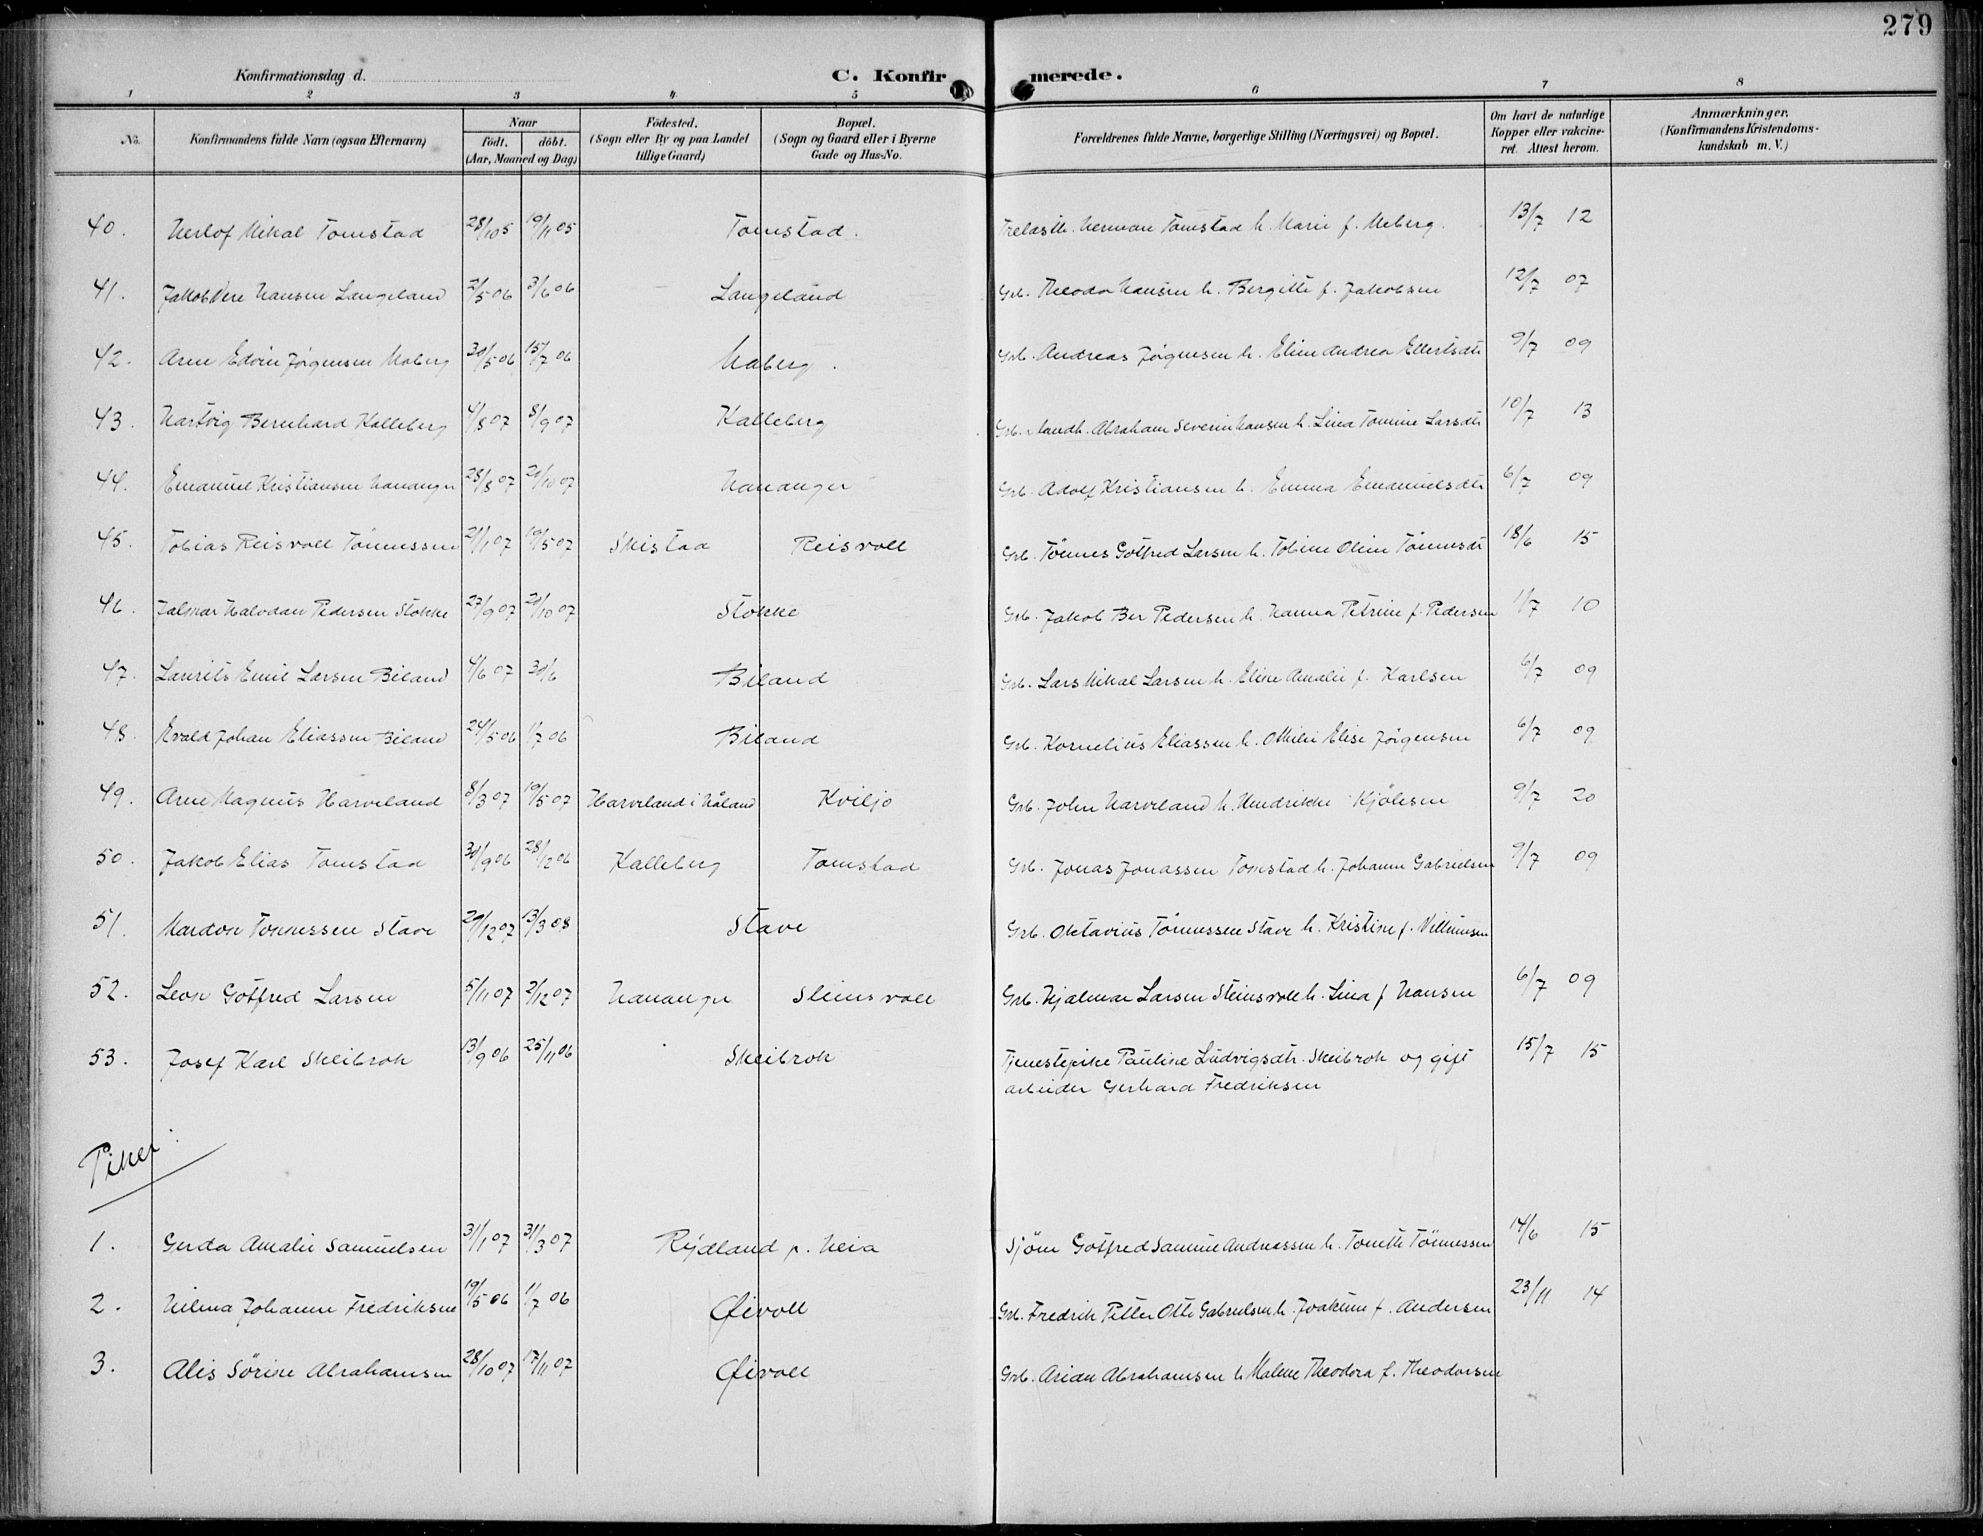 279
Konfirmationsdag d.
C. Konfirmerede.
1 2 3 4 5 6 7 8
No.
Konfirmandens fulde Navn (ogsaa Efternavn)
Naar
födt. döbt.
(Aar, Maaned og Dag)
Födested.
(Sogn eller By og paa Landet
tillige Gaard)
Bopæl.
(Sogn og Gaard eller i Byerne
Gade og Hus-No.
Forældrenes fulde Navne, borgerlige Stilling (Næringsvei) og Bopæl.
Om havt de naturlige
Kopper eller vakcine-
ret. Attest herom.
Anmærkninger.
(Konfirmandens Kristendoms-
kundskab m. V.)
40. Herlof Mikal Tomstad 28/10 5 19/11 05 Tomstad. Trelasth. Herman Tomstad h. Marie f. Meberg. 13/7 12
41. Jakob Hansen Langeland 2/5 06 3/6 06 Langeland Grb. Theodor Hansen h. Bergitte f. Jakobsen 12/7 07
42. Arne Edvin Jørgensen Maberg 30/5 06 15/7 06 Maberg. Grb. Andreas Jørgensen h. Eline Andrea Ellertsdtr 9/7 09
43. Hartvig Bernhard Kalleberg 4/8 07 8/9 07 Kalleberg Grb. Abraham Severin Hansen h. Lina Tomine Larsdtr 10/7 13
44. Emanuel Kristiansen Hananger 28/8 07 20/10 07 Hananger Grb. Adolf Kristiansen h. Emma Emanuelsdtr 6/7 09
45. Tobias Reisvoll Tönnessen 21/1 07 19/5 07 Skistad Reisvoll Grb. Tönnes Gotfred Larsen h. Tobine Oline Tönnesdt 18/6 15
46. Jalmar Halvdan Pedersen Stokke 27/9 07 20/10 07 Stokke Grb. Jakob Ber Pedersen h. Hanna Petrine f. Pedersen 1/7 10
47. Laurits Emil Larsen Biland 4/6 07 30/6 Biland Grb. Lars Mikal Larsen h. Eline Amalie f. Karlsen 6/7 09
48. Evald Johan Eliassen Biland 24/5 06 1/7 06 Biland Grb. Kornelius Eliassen h. Otilie Elise Jørgensen 6/7 09
49. Arne Magnus Harviland 8/3 07 19/5 07 Harviland i Håland Kviljo Grb. John Harviland h. Hendrikke Kjölesen 9/7 20
50. Jakob Elias Tomstad 30/9 06 28/12 06 Kalleberg Tomstad Grb. Jonas Jonassen Tomstad h. Johanne Gabrielsen 9/7 09
51. Mardon Tonnessen Stave 29/12 07 13/3 08 Stave Grb. Oktavius Tönnessen Stave h. Kristine f. Villumsen
52. Leon Gotfred Larsen 5/11 07 2/12 07 Hananger Steinsvoll Grb. Hjalmar Larsen Steinsvoll h. Lina f Hansen 6/7 09
53. Josef Karl Skeibrok 13/9 06 25/11 06 Skeibrok Tjenestepike Pauline Ludvigsdtr. Skeibrok og gift 15/7 15
arbeider Gerhard Fredriksen
Piker
1. Gerda Amalie Samuelsen 31/1 07 31/3 07 Rydland p. Heia Sjöm Gotfred Samine Andreassen h. Tomette Tönnessen 14/6 15
2. Hilma Johanne Fredriksen 19/5 06 1/7 06 Øivoll Grb. Fredrik Petter Otto Gabrielsen h. Joakime f. Andersen 23/11 14
3. Alis Sörine Abrahamsen 28/10 07 17/11 07 Øivoll Grb. Arian Abrahamsen h Malene Theodora f. Theodorsen